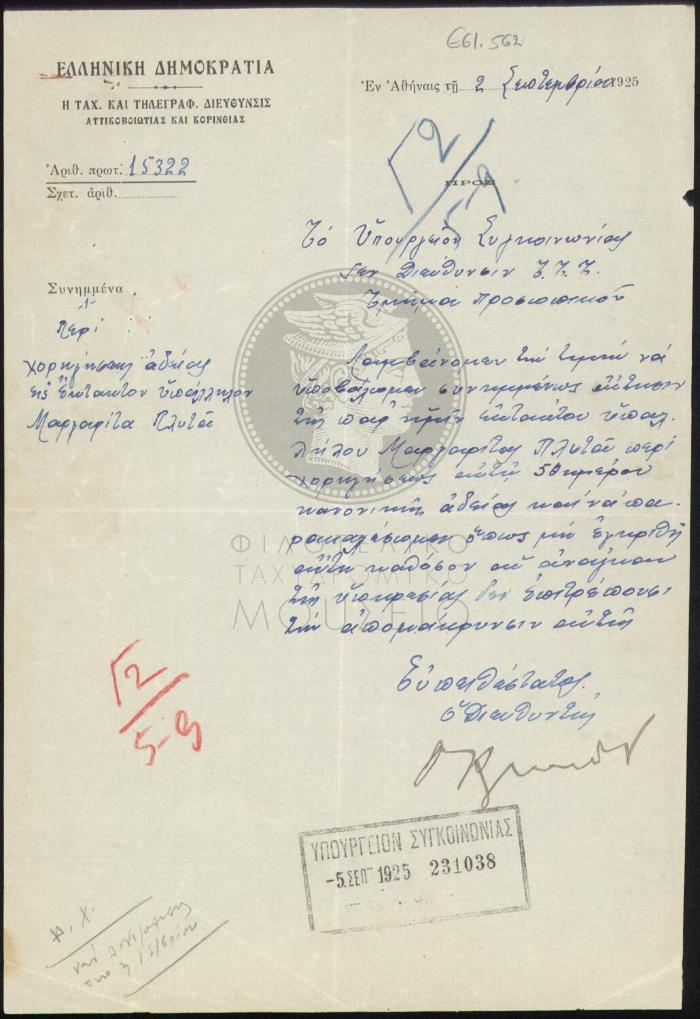 Ε61.562
ΕΛΛΗΝΙΚΗ ΔΗΜΟΚΡΑΤΙΑ
Η ΤΑΧ. ΚΑΙ ΤΗΛΕΓΡΑΦ. ΔΙΕΥΘΥΝΣΙΣ
ΑΤΤΙΚΟΒΟΙΩΤΙΑΣ ΚΑΙ ΚΟΡΙΝΘΙΑΣ
Ἐν Ἀθήναις τῇ 2 Σεπτεμβρίου 1925
Ἀριθ. πρωτ. 15322
Σχετ. ἀριθ.
Γ2/5-9
ΠΡΟΣ
Τὸ Ὑπουργεῖον Συγκοινωνίας
Γεν Διεύθυνσιν Τ.Τ.Τ.
Τμῆμα προσωπικοῦ
Συνημμένα
1
Περὶ
χορηγήσεως ἀδείας
εἰς ἔκτακτον ὑπάλληλον
Μαργαρίτα Πλυτᾶ
Λαμβάνομεν τὴν τιμὴν νὰ
ὑποβάλωμεν συνημμένως αἴτησιν
τῆς παρ' ἡμῖν ἐκτάκτου ὑπαλ
λήλου Μαργαρίτας Πλυτᾶ περὶ
χορηγήσεως αὐτῇ 50ημέρου
κανονικῆς ἀδείας καὶ νὰ πα
ρακαλέσωμεν ὅπως μὴ ἐγκριθῇ
αὕτη καθόσον αἱ ἀνάγκαι
τῆς ὑπηρεσίας δὲν ἐπιτρέπουσι
τὴν ἀπομάκρυνσιν αὐτῆς
ΦΙΛΟΤΕΛΙΚΟ
ΤΑΧΥΔΡΟΜΙΚΟ
ΜΟΥΣΕΙΟ
Εὐπειθέστατος
ὁ Διευθυντὴς
Γ2/5-9
ΥΠΟΥΡΓΕΙΟΝ ΣΥΓΚΟΙΝΩΝΙΑΣ
-5.ΣΕΠ 1925 231038
Α. Χ.